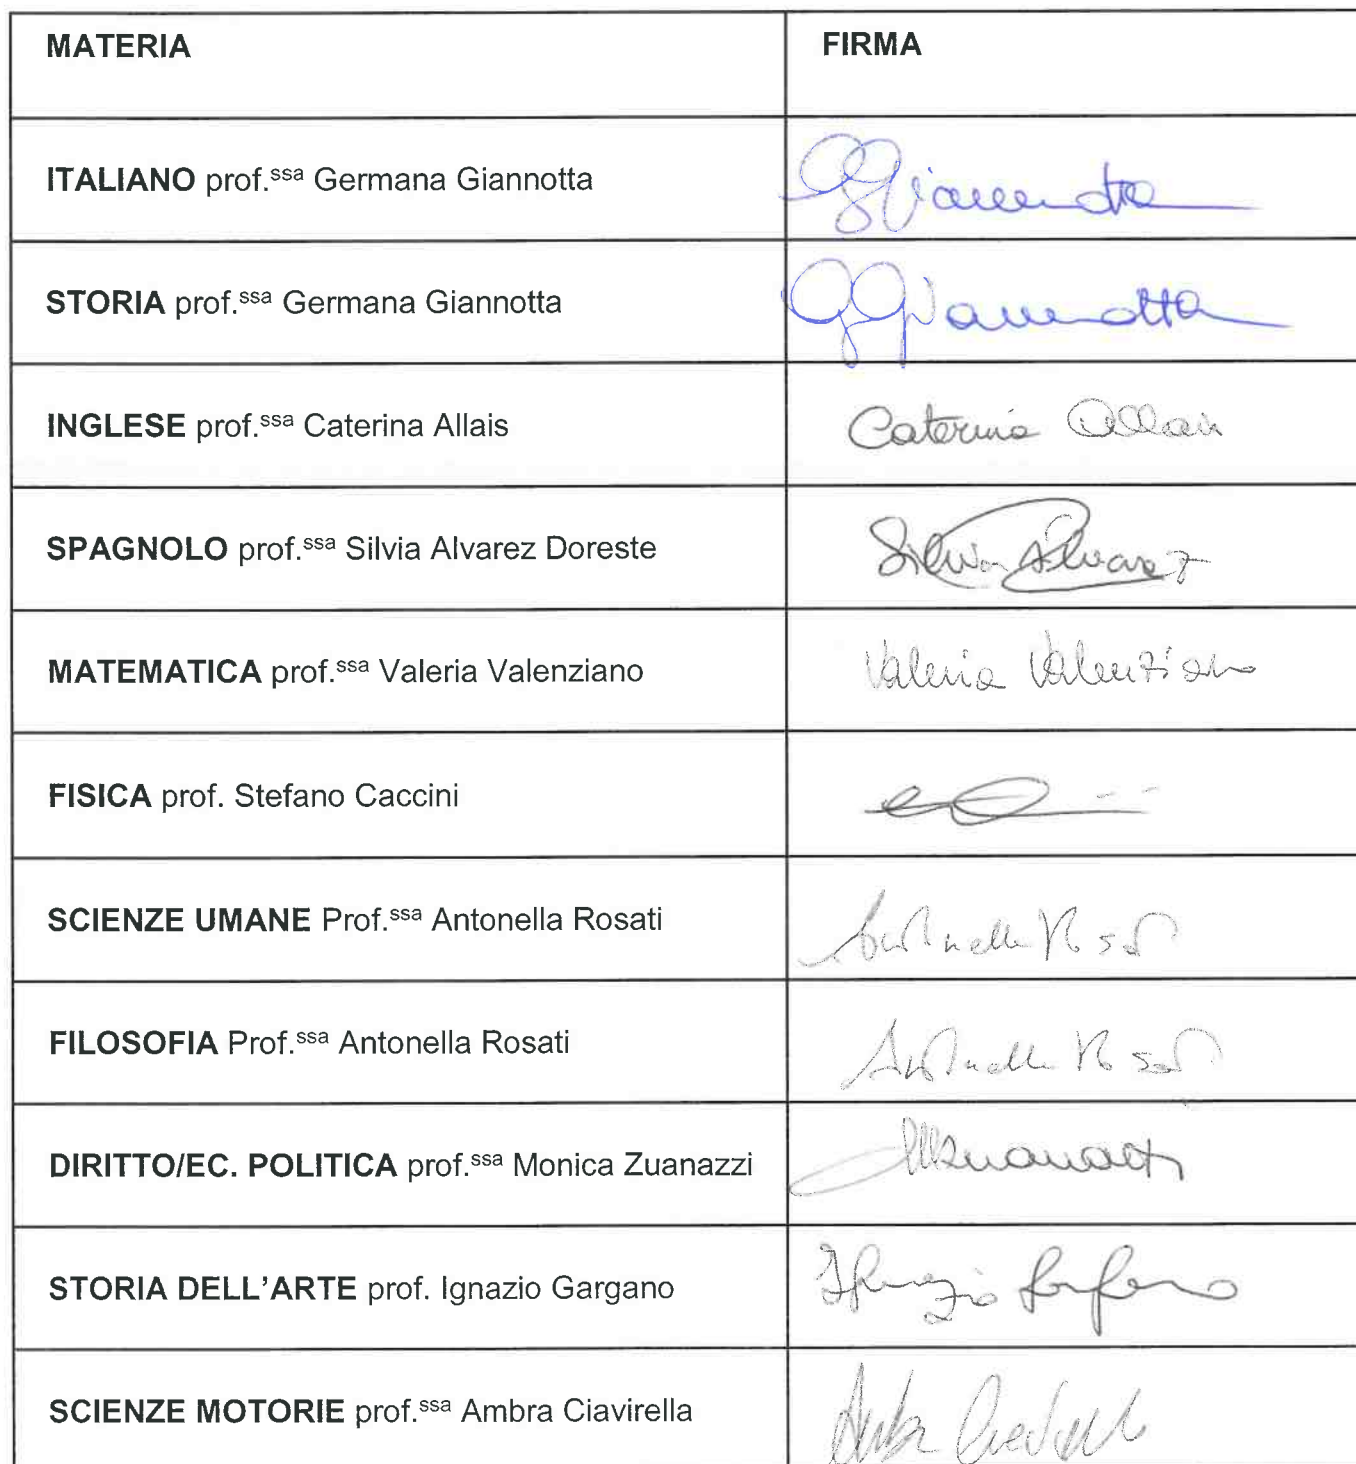 MATERIA FIRMA
ITALIANO prof.ssa Germana Giannotta GGiannotta
STORIA prof.ssa Germana Giannotta GGiannotta
INGLESE prof.ssa Caterina Allais Caterina Allais
SPAGNOLO prof.ssa Silvia Alvarez Doreste Silvia Álvarez
MATEMATICA prof.ssa Valeria Valenziano Valeria Valenziano
FISICA prof. Stefano Caccini
SCIENZE UMANE Prof.ssa Antonella Rosati Antonella Rosati
FILOSOFIA Prof.ssa Antonella Rosati Antonella Rosati
DIRITTO/EC. POLITICA prof.ssa Monica Zuanazzi MZuanazzi
STORIA DELL'ARTE prof. Ignazio Gargano Ignazio Gargano
SCIENZE MOTORIE prof.ssa Ambra Ciavirella Ambra Ciavirella